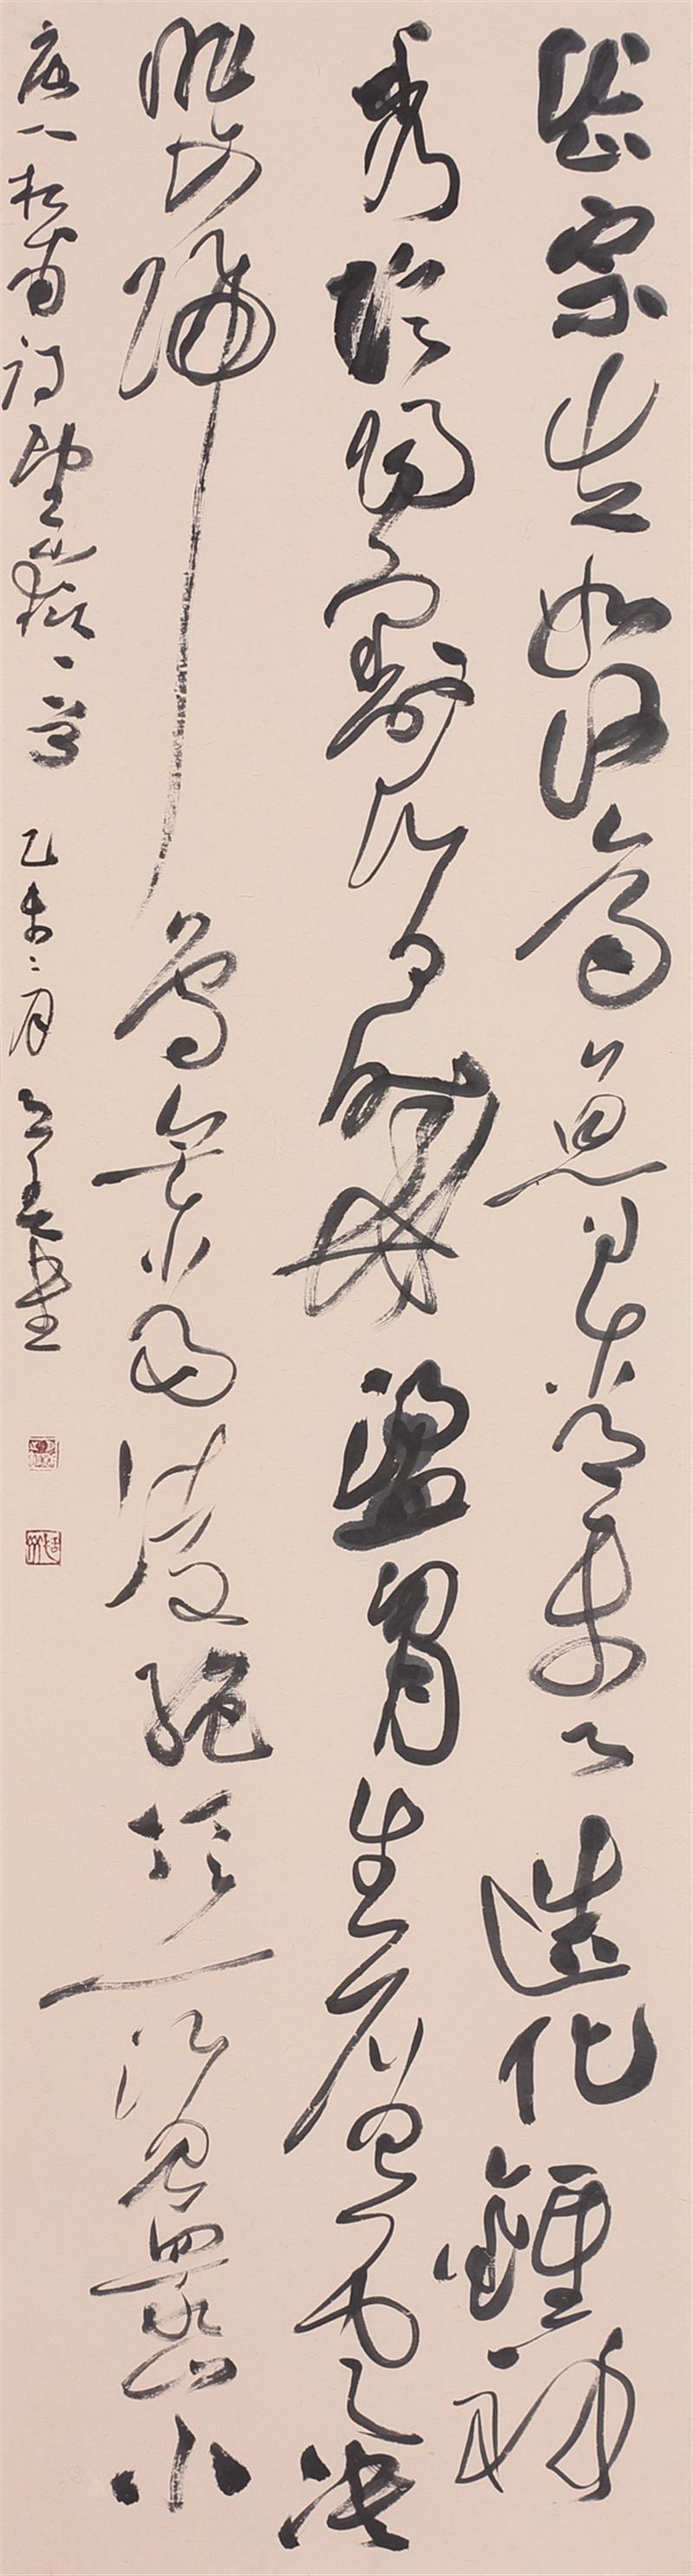 岱宗夫如何齊魯青未了造化鍾神
秀陰陽割昏曉盪胸生層雲決
眥入歸鳥會當凌絕頂一覽眾山小
唐人杜甫詩望嶽一首 乙未二月